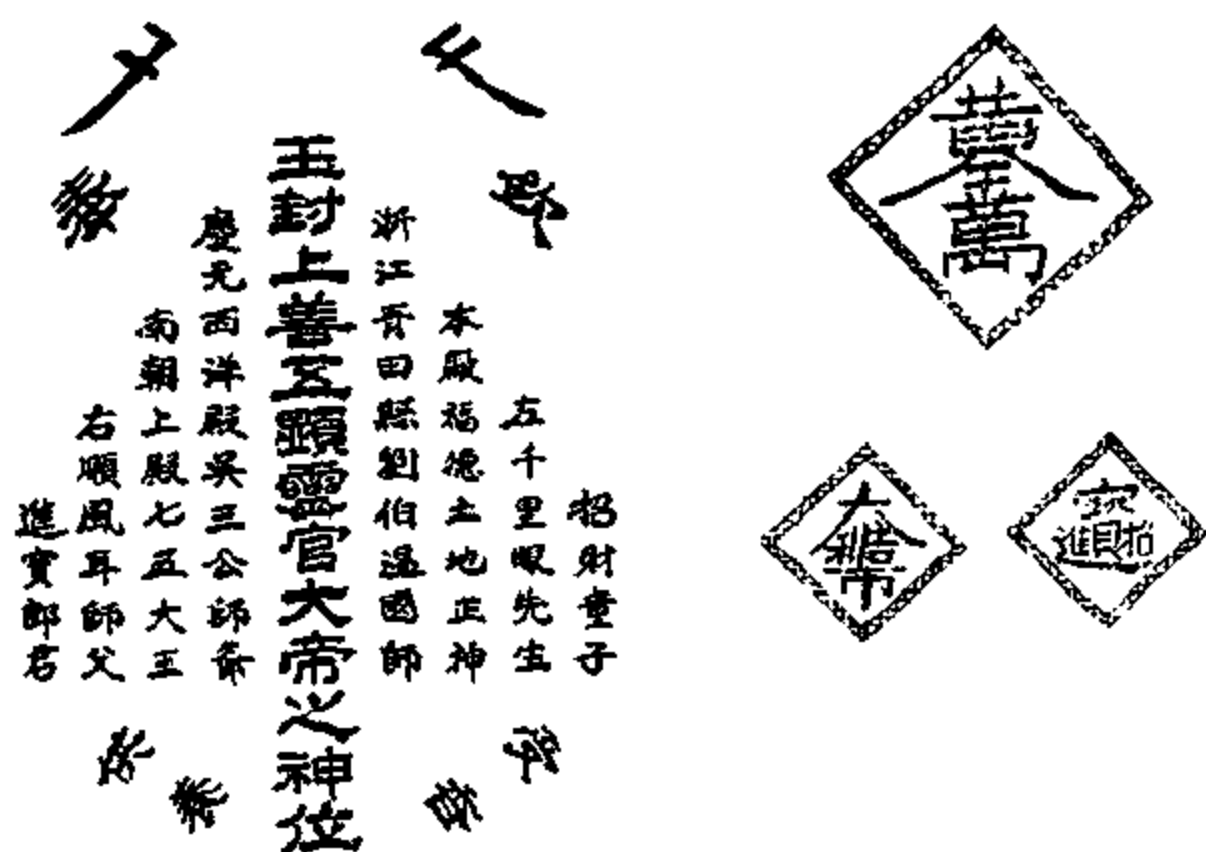 招財童子
左千里眼先生
本殿福德土地正神
浙江青田縣劉伯溫國師
玉封上善五顯靈官大帝之神位
慶元西洋殿吳三公師爺
南朝上殿七五大王
右順風耳師父
進寶郎君
黃金萬
招財進寶